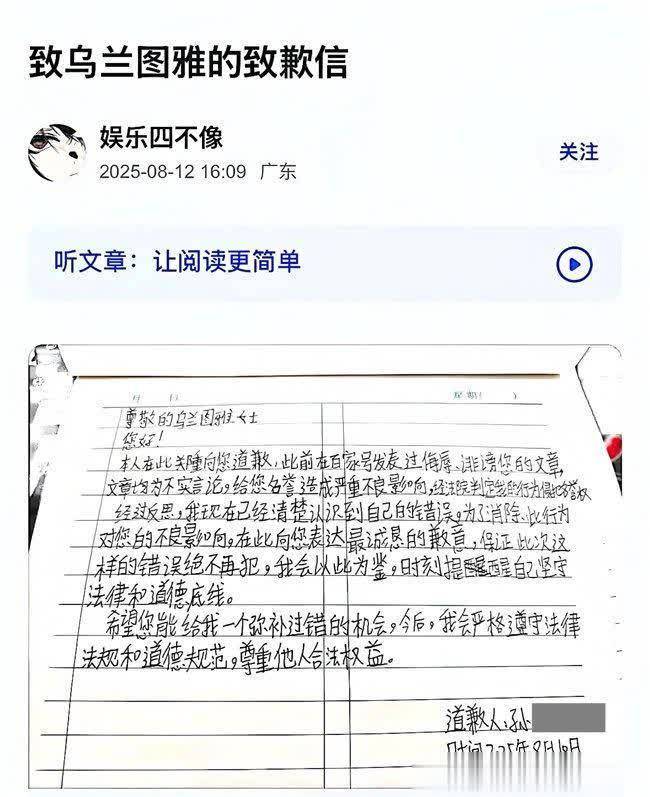 致乌兰图雅的致歉信
娱乐四不像
关注
2025-08-12 16:09 广东
听文章：让阅读更简单
月 日 星期( )
尊敬的乌兰图雅女士
您好！
本人在此关隆向您道歉，此前在百家号发表过侮辱、诽谤您的文章，
文章均为不实言论，给您名誉造成严重不良影响，经法院判定我的行为侵犯名誉权
经过反思，我现在已经清楚认识到自己的错误，为了消除此行为
对您的不良影响，在此向您表达最诚恳的歉意，保证此次这
样的错误绝不再犯，我会以此为鉴，时刻提醒醒自己坚守
法律和道德底线。
希望您能给我一个弥补过错的机会，今后，我会严格遵守法律
法规和道德规范，尊重他人合法权益。
道歉人：孙